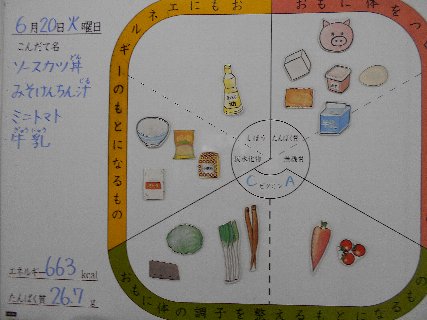 6月20日火曜日
こんだて名
ソースカツ丼
どん
みそけんちん汁
じる
ミニトマト
ぎゅうにゅう
牛乳
エネルギー 663 kcal
たんぱく質 26.7 g
エネルギーのもとになるもの
おもに体をつ
おもに体の調子を整えるもとになるもの
しぼう
たんぱく質
炭水化物
無機質
C ビタミン A